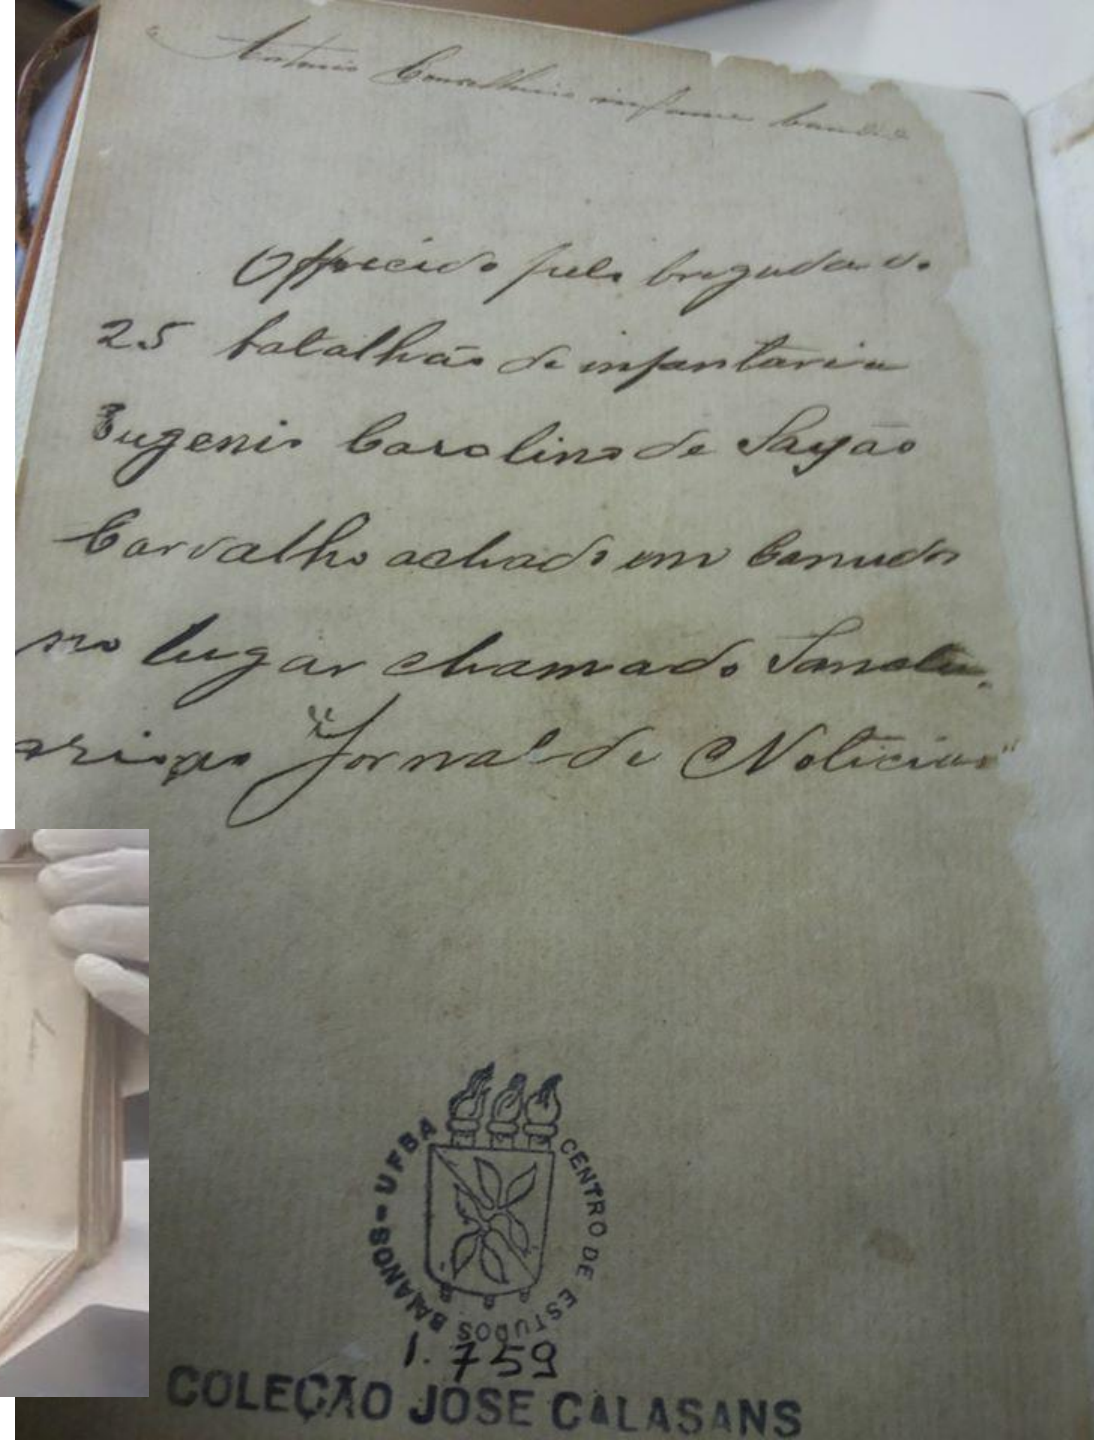 Antonio Conselheiro infame bandido
Offrecido pelo brigada do
25 batalhão de infantaria
Eugenio Carolino de Sayão
Carvalho achado em Canudos
no lugar chamado Sanctu-
ario, ao "Jornal de Noticias"
CENTRO DE ESTUDOS BAIANOS - UFBA
1.759
COLEÇÃO JOSE CALASANS